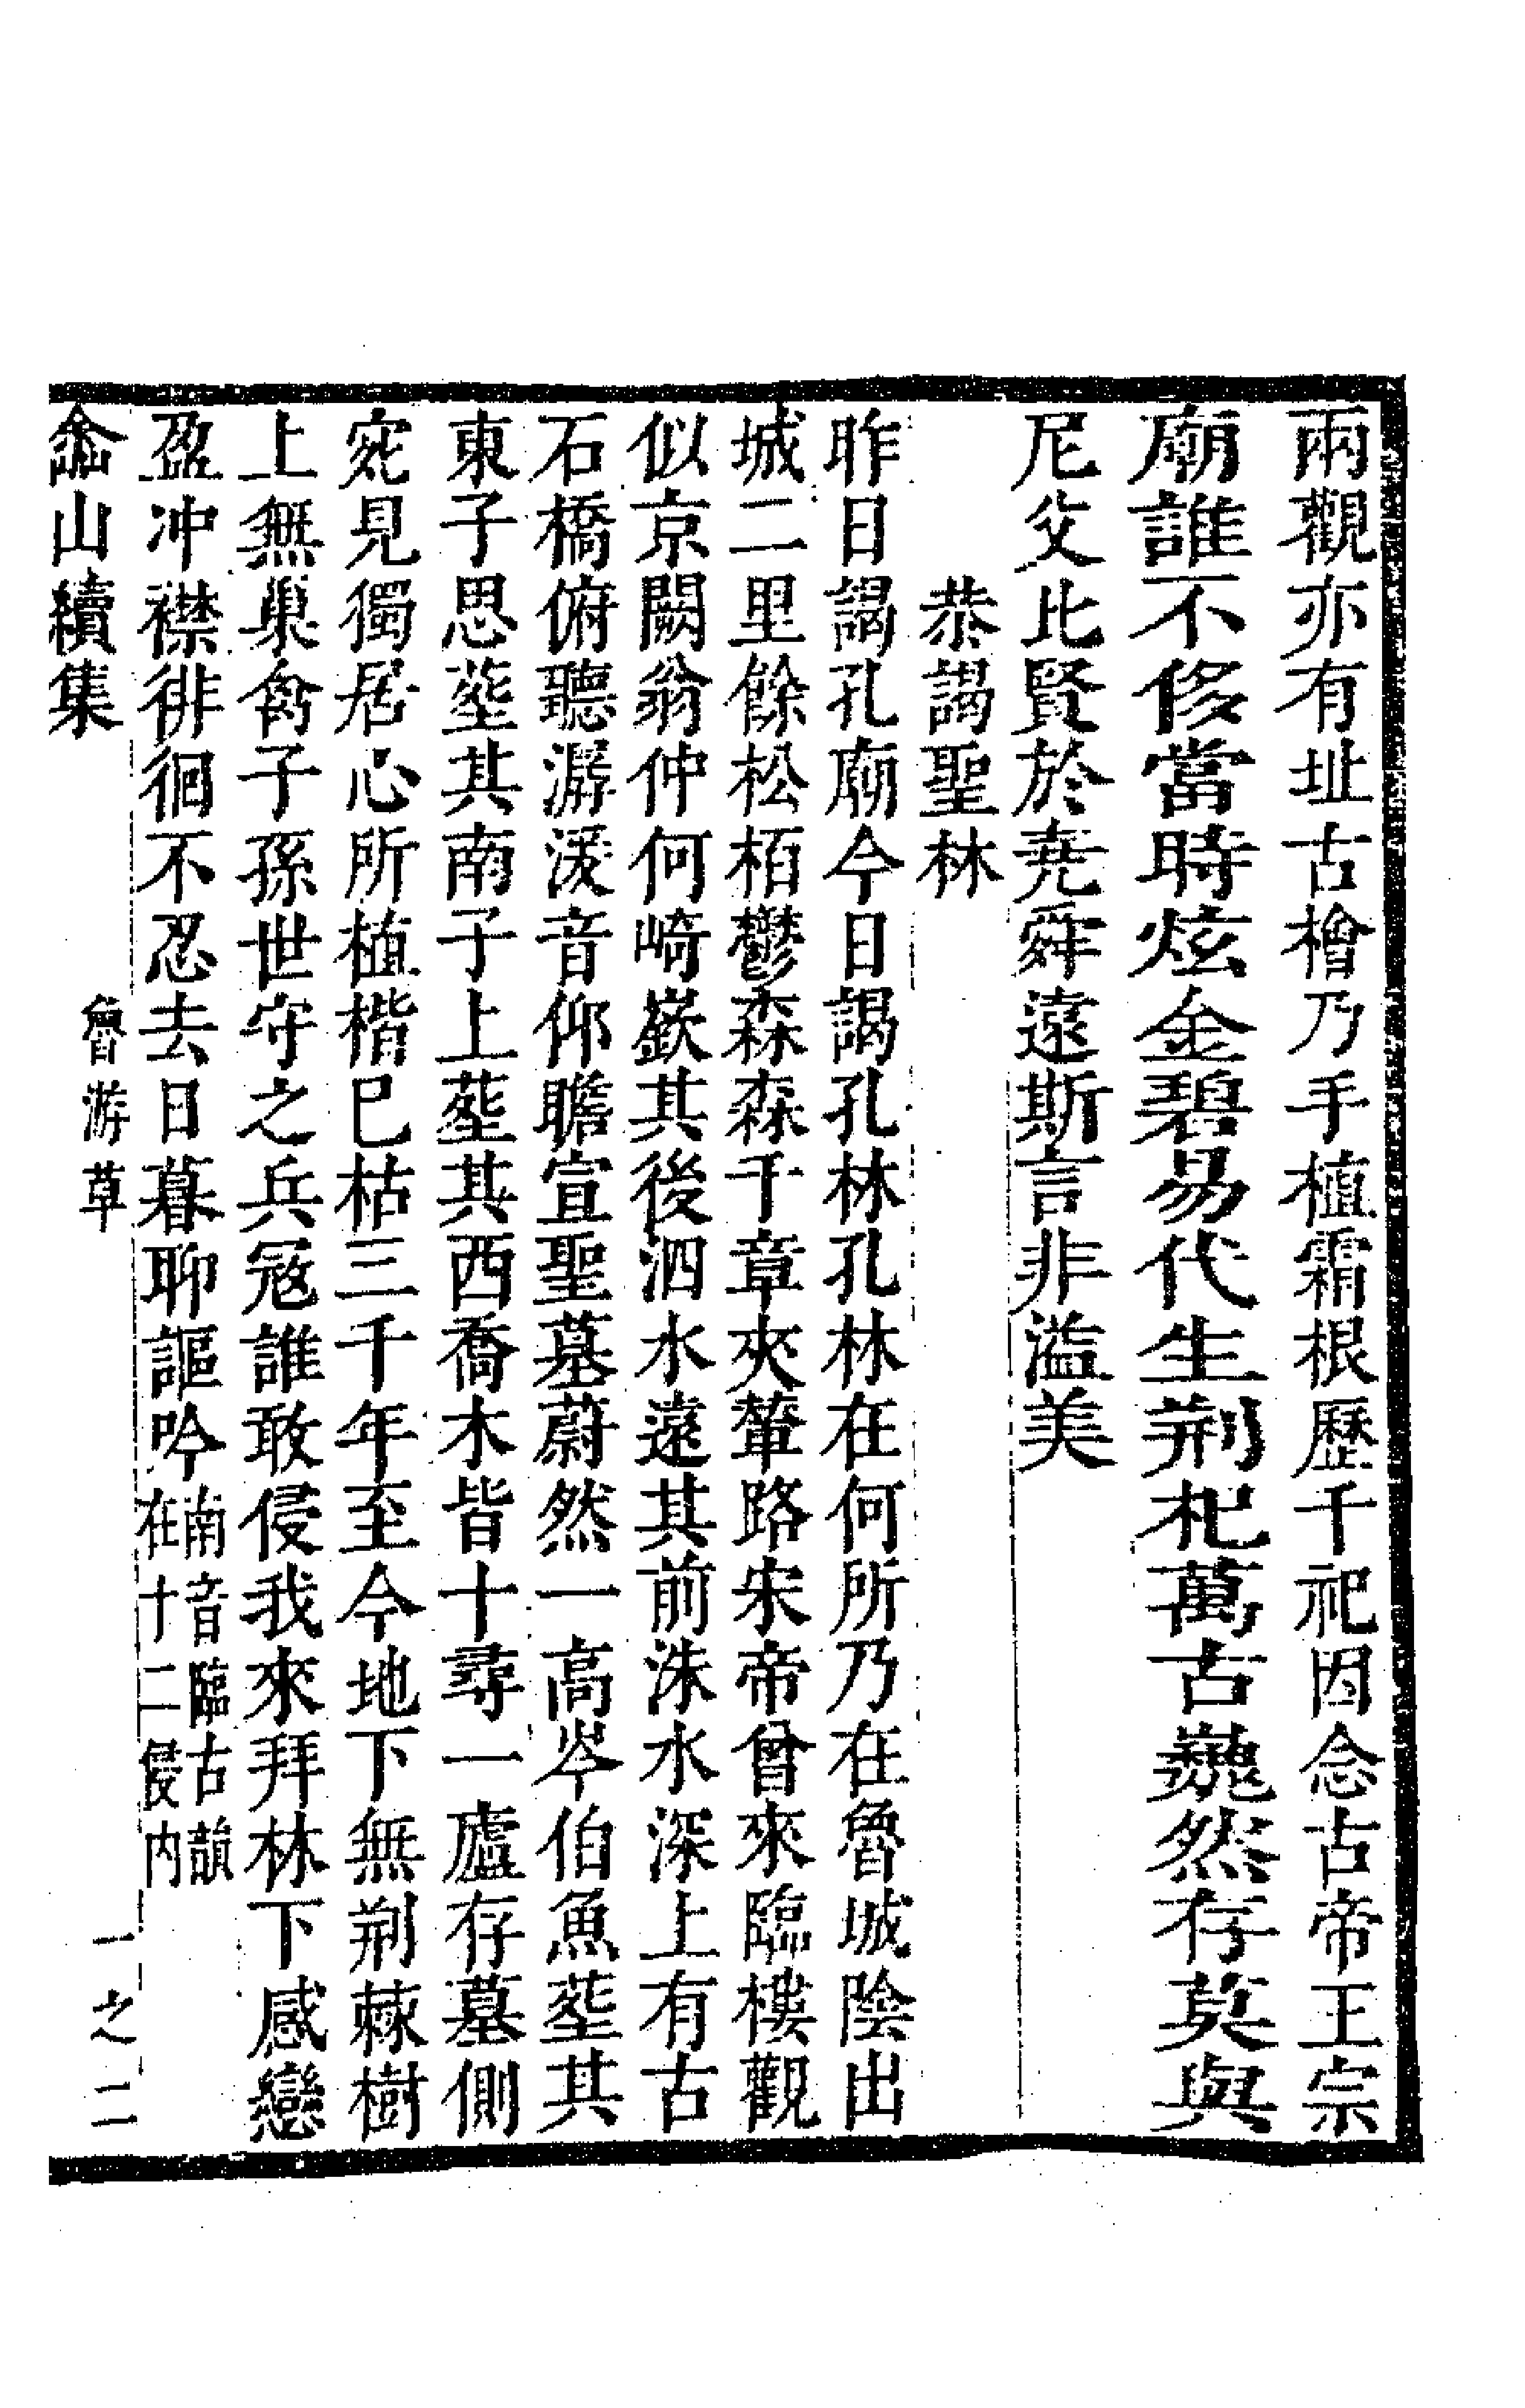 兩觀亦有址古檜乃手植霜根歷千祀因念古帝王宗
廟誰不侈當時炫金碧易代生荆杞萬古巍然存莫與
尼父比賢於堯舜遠斯言非溢美
恭謁聖林
昨日謁孔廟今日謁孔林孔林在何所乃在魯城陰出
城二里餘松栢鬱森森千章夾輦路宋帝曾來臨樓觀
似京闕翁仲何崎嶔其後泗水遠其前洙水深上有古
石橋俯聽潺湲音仰瞻宣聖墓蔚然一高岑伯魚塟其
東子思塟其南子上塟其西喬木皆十尋一廬存墓側
宛見獨居心所植楷巳枯三千年至今地下無荆棘樹
上無巢禽子孫世守之兵冦誰敢侵我來拜林下感戀
盈冲襟徘徊不忍去日暮聊謳吟南音臨古韻
在十二侵内
山續集
魯游草
一之二